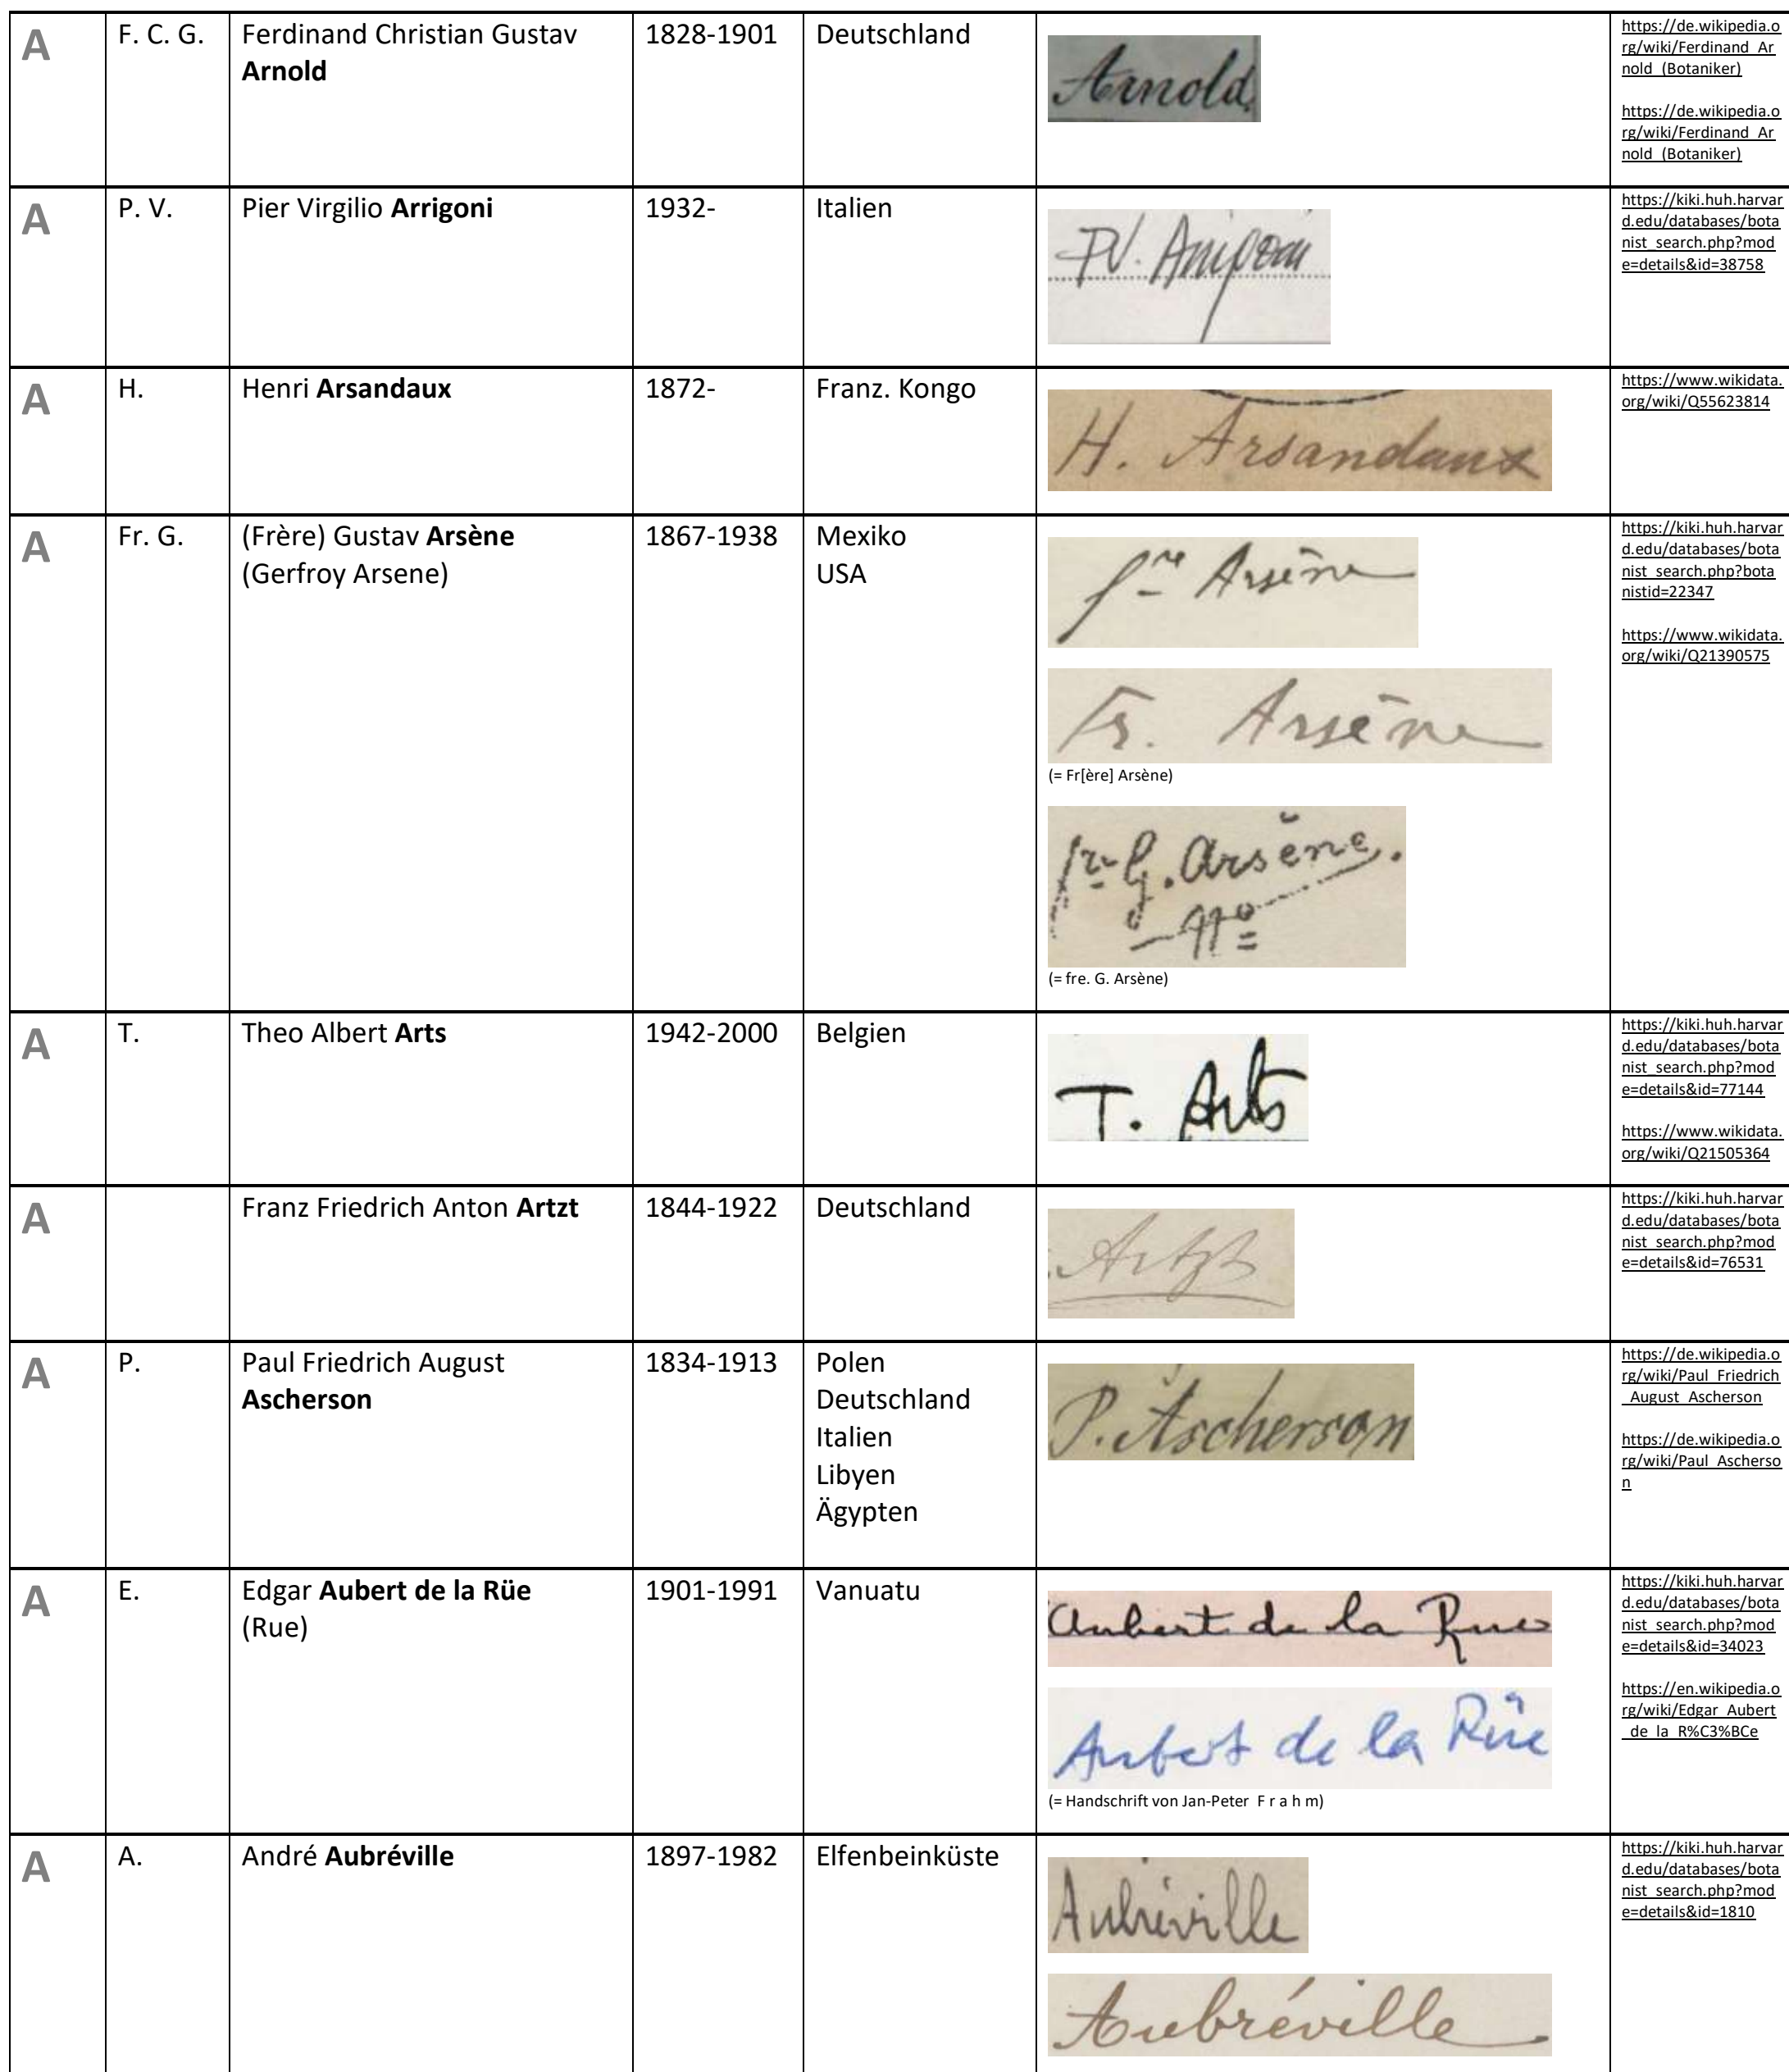 A
F. C. G.
Ferdinand Christian Gustav
Arnold
1828-1901
Deutschland
Arnold
https://de.wikipedia.o
rg/wiki/Ferdinand_Ar
nold_(Botaniker)
https://de.wikipedia.o
rg/wiki/Ferdinand_Ar
nold_(Botaniker)
A
P. V.
Pier Virgilio Arrigoni
1932-
Italien
PV. Arrigoni
https://kiki.huh.harvar
d.edu/databases/bota
nist_search.php?mod
e=details&id=38758
A
H.
Henri Arsandaux
1872-
Franz. Kongo
H. Arsandaux
https://www.wikidata.
org/wiki/Q55623814
A
Fr. G.
(Frère) Gustav Arsène
(Gerfroy Arsene)
1867-1938
Mexiko
USA
fre Arsène
Fr. Arsène
(= Fr[ère] Arsène)
fre G. Arsène.
No
(= fre. G. Arsène)
https://kiki.huh.harvar
d.edu/databases/bota
nist_search.php?bota
nistid=22347
https://www.wikidata.
org/wiki/Q21390575
A
T.
Theo Albert Arts
1942-2000
Belgien
T. Arts
https://kiki.huh.harvar
d.edu/databases/bota
nist_search.php?mod
e=details&id=77144
https://www.wikidata.
org/wiki/Q21505364
A
Franz Friedrich Anton Artzt
1844-1922
Deutschland
Artzt
https://kiki.huh.harvar
d.edu/databases/bota
nist_search.php?mod
e=details&id=76531
A
P.
Paul Friedrich August
Ascherson
1834-1913
Polen
Deutschland
Italien
Libyen
Ägypten
P. Ascherson
https://de.wikipedia.o
rg/wiki/Paul_Friedrich
_August_Ascherson
https://de.wikipedia.o
rg/wiki/Paul_Ascherso
n
A
E.
Edgar Aubert de la Rüe
(Rue)
1901-1991
Vanuatu
Aubert de la Rue
Aubert de la Rüe
(= Handschrift von Jan-Peter F r a h m)
https://kiki.huh.harvar
d.edu/databases/bota
nist_search.php?mod
e=details&id=34023
https://en.wikipedia.o
rg/wiki/Edgar_Aubert
_de_la_R%C3%BCe
A
A.
André Aubréville
1897-1982
Elfenbeinküste
Aubréville
Aubréville
https://kiki.huh.harvar
d.edu/databases/bota
nist_search.php?mod
e=details&id=1810